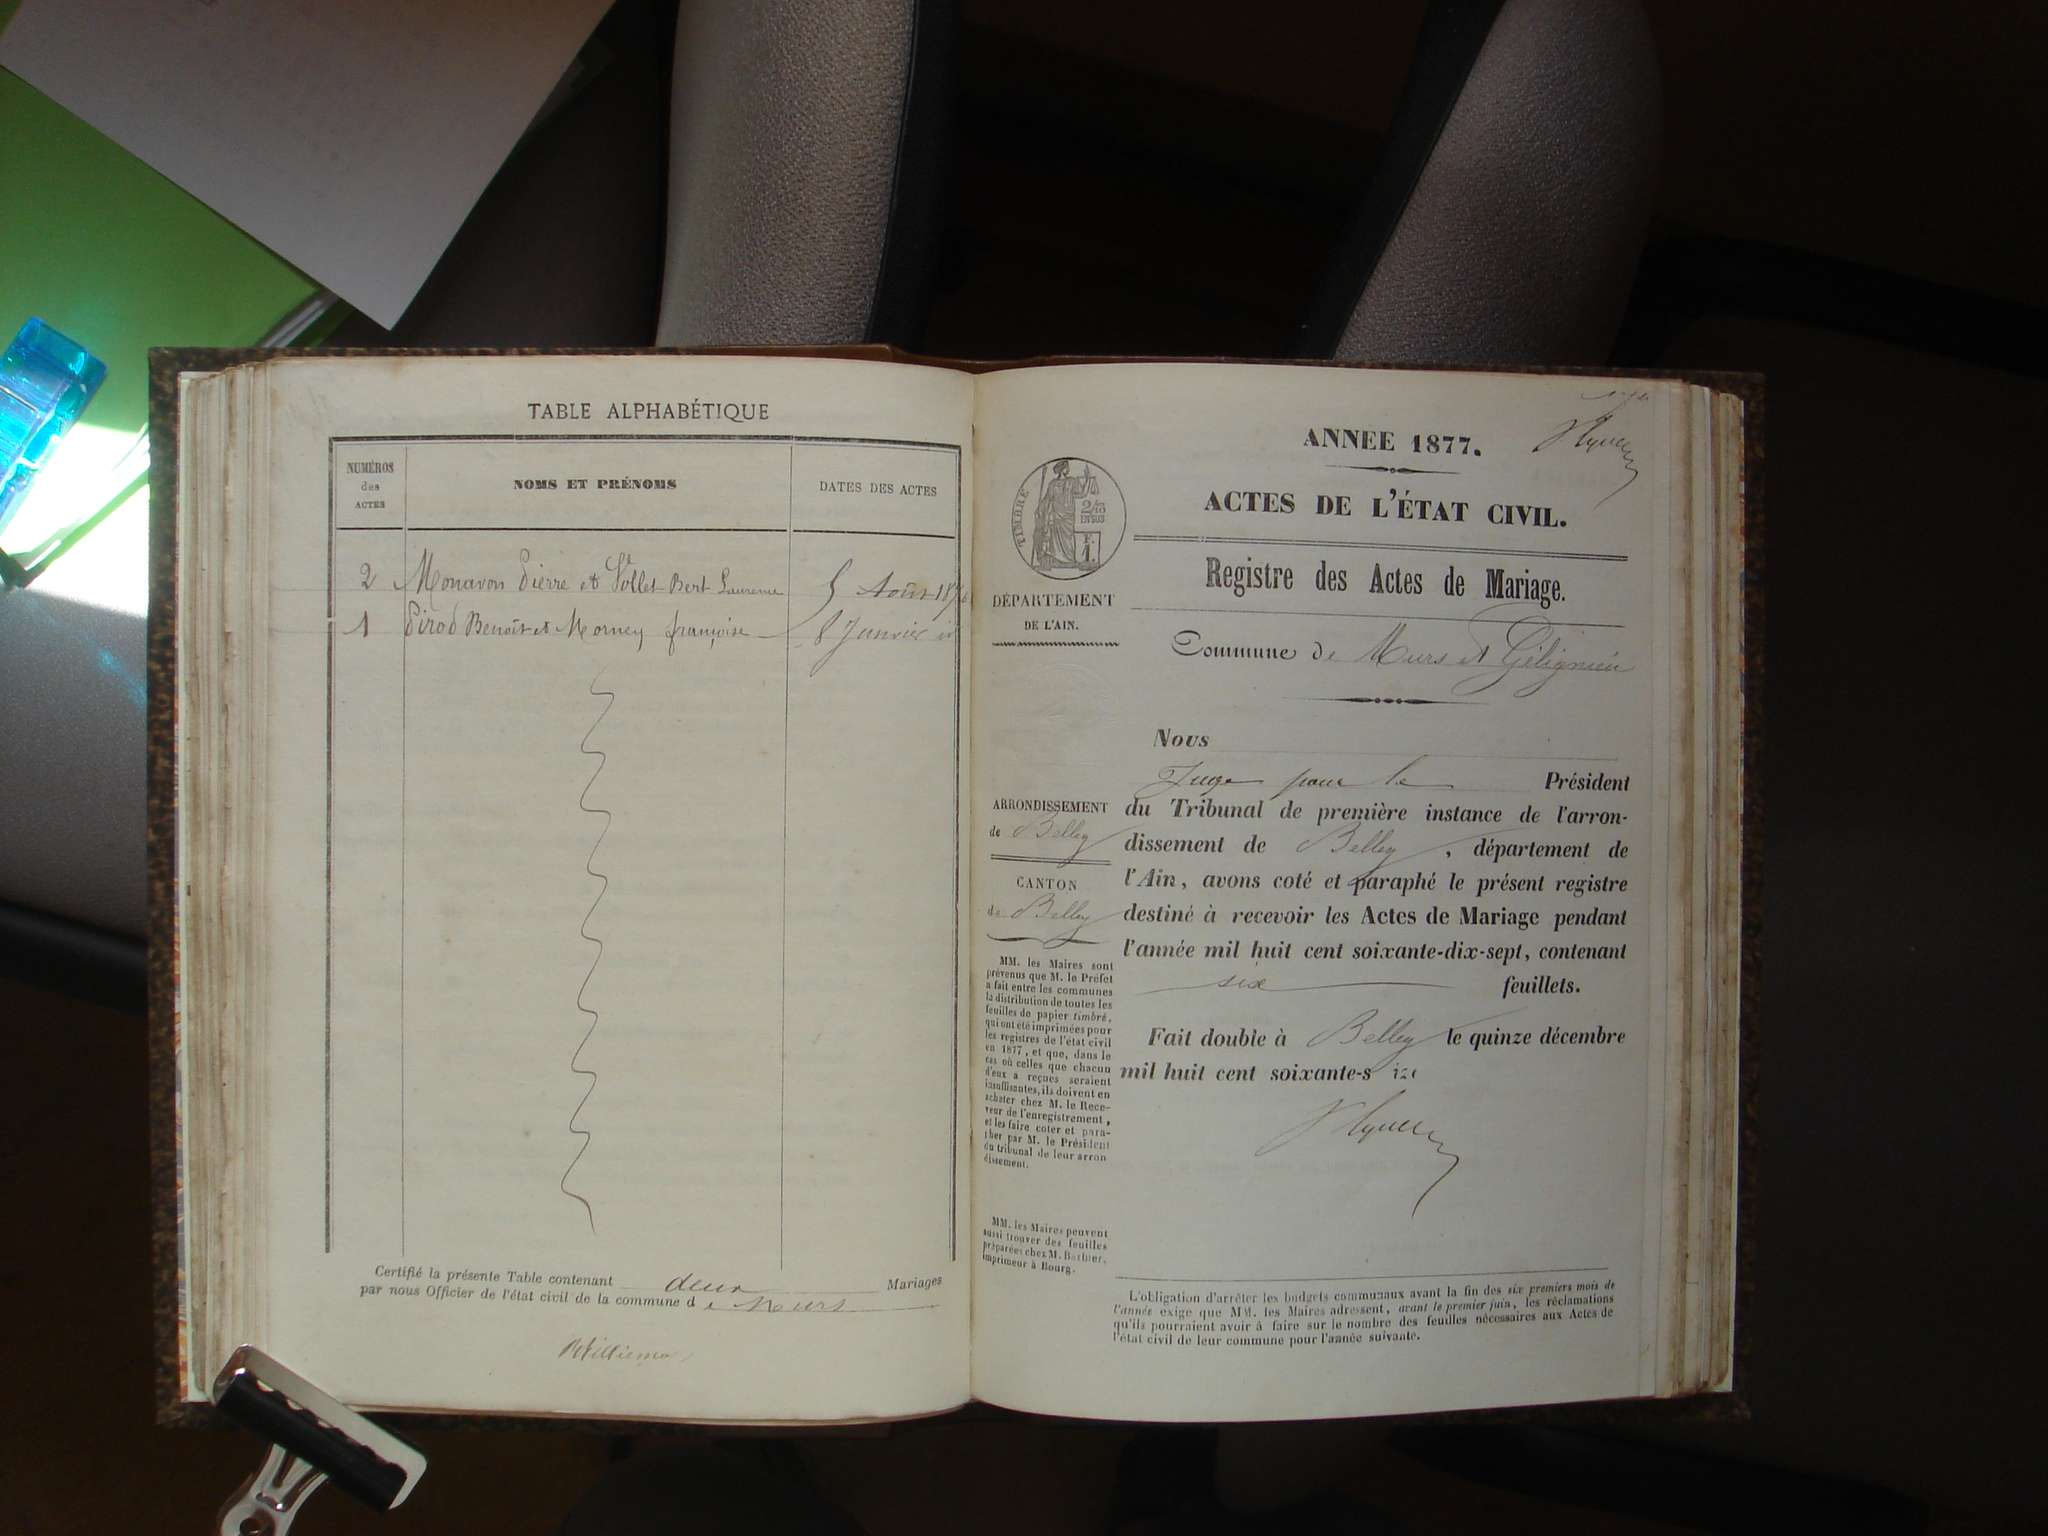 TABLE ALPHABÉTIQUE
NUMÉROS
des
ACTES
NOMS ET PRÉNOMS
DATES DES ACTES
2 Monavon Pierre et Vollet-Bert Laurence 5 Août 1876
1 Pirod Benoît et Morney françoise 8 Janvier id
Certifié la présente Table contenant deux Mariages
par nous Officier de l'état civil de la commune de Murs
ANNÉE 1877.
ACTES DE L'ÉTAT CIVIL.
TIMBRE
2/10
EN SUS
F.
1.
Registre des Actes de Mariage.
DÉPARTEMENT
DE L'AIN.
Commune de Murs et Gélignieu
Nous
Juge pour le Président
du Tribunal de première instance de l'arron-
dissement de Belley, département de
l'Ain, avons coté et paraphé le présent registre
destiné à recevoir les Actes de Mariage pendant
l'année mil huit cent soixante-dix-sept, contenant
six feuillets.
Fait double à Belley le quinze décembre
mil huit cent soixante-s ize
ARRONDISSEMENT
de Belley
CANTON
de Belley
MM. les Maires sont
prévenus que M. le Préfet
a fait entre les communes
la distribution de toutes les
feuilles de papier timbré,
qui ont été imprimées pour
les registres de l'état civil
en 1877, et que, dans le
cas où celles que chacun
d'eux a reçues seraient
insuffisantes, ils doivent en
acheter chez M. le Rece-
veur de l'enregistrement,
et les faire coter et para-
pher par M. le Président
du tribunal de leur arron
dissement.
MM. les Maires peuvent
aussi trouver des feuilles
préparées chez M. Barbier,
imprimeur à Bourg.
L'obligation d'arrêter les budgets communaux avant la fin des six premiers mois de
l'année exige que MM. les Maires adressent, avant le premier juin, les réclamations
qu'ils pourraient avoir à faire sur le nombre des feuilles nécessaires aux Actes de
l'état civil de leur commune pour l'année suivante.